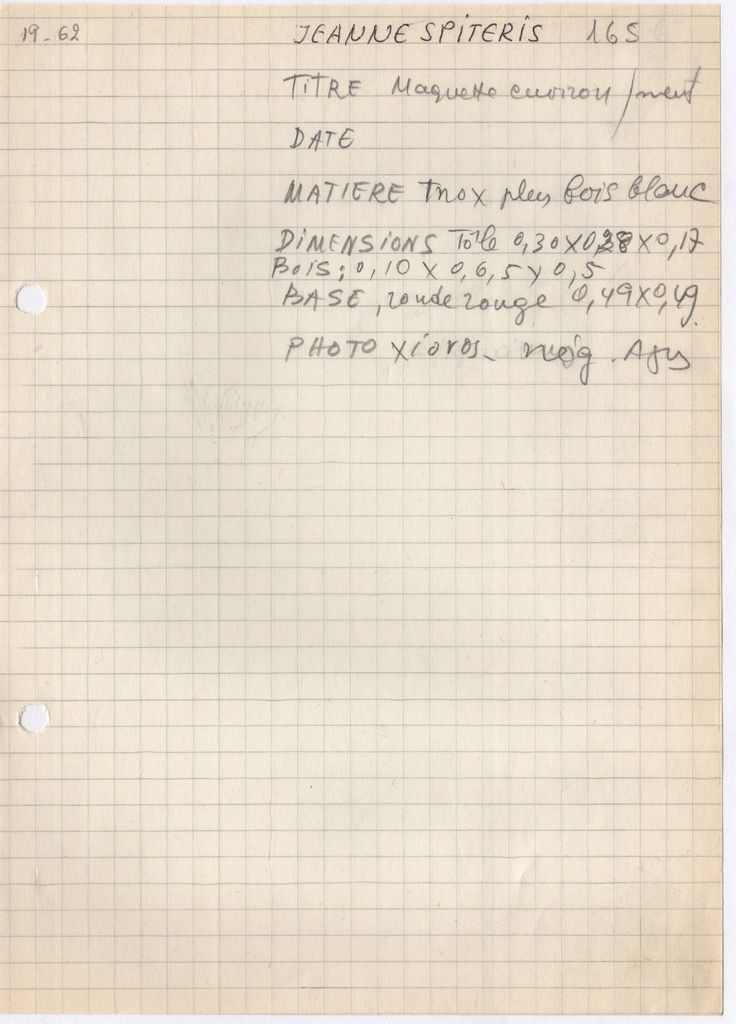 19-62
JEANNE SPITERIS 165
TITRE Maquette environ/ment
DATE
MATIERE Inox plus bois blanc
DIMENSIONS Tôle 0,30X0,28X0,17
BOIS: 0,10 X 0,6,5 X 0,5
BASE, ronde rouge 0,49X0,49
PHOTO Χίονος